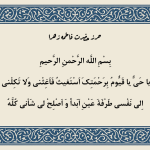 حرز حضرت فاطمه زهرا
بِسْمِ اللَّهِ الرَّحْمنِ الرَّحيمِ
يا حَىُّ يا قَيُّومُ بِرَحْمَتِكَ اَسْتَغيثُ فَاَغِثْنى وَلا تَكِلْنى
اِلى نَفْسى طَرْفَةَ عَيْنٍ اَبَداً وَ اَصْلِحْ لى شَاْنى كُلَّهُ